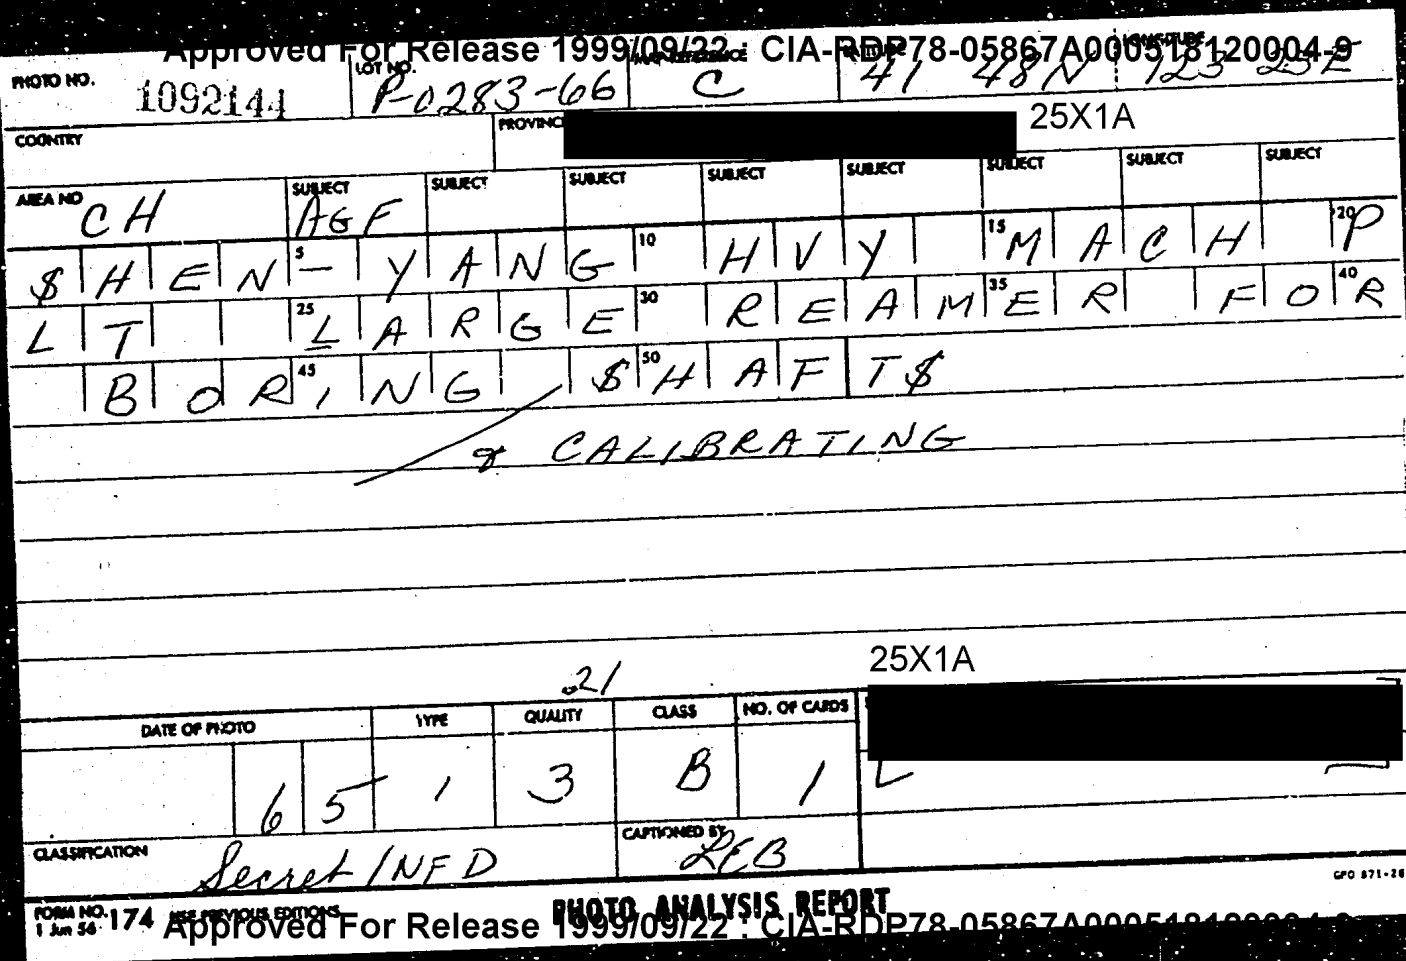 Approved For Release 1999/09/22 : CIA-RDP78-05867A000518120004-9
PHOTO NO. 1092144 LOT NO. P-0283-66 C 41 48N LONGITUDE 123 25E
COUNTRY PROVINC 25X1A
AREA NO CH SUBJECT AGF SUBJECT SUBJECT SUBJECT SUBJECT SUBJECT SUBJECT SUBJECT
$HEN-YANG HVY MACH P
LT LARGE REAMER FOR
BORING $HAFT$
& CALIBRATING
21 25X1A
DATE OF PHOTO TYPE QUALITY CLASS NO. OF CARDS
65 1 3 B 1
CLASSIFICATION Secret/NFD CAPTIONED BY LEB
GPO 871-28
FORM NO. 174 USE PREVIOUS EDITIONS PHOTO ANALYSIS REPORT
1 Jun 56
Approved For Release 1999/09/22 : CIA-RDP78-05867A000518120004-9